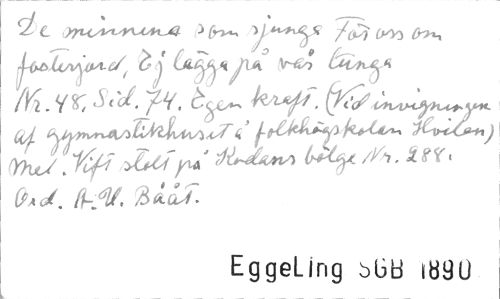 De minnena som sjunga För oss om
fosterjord, Ej lägga på vår tunga
Nr. 48. Sid. 74. Egen kraft. (Vid invigningen
af gymnastikhuset å folkhögskolan Hvilan)
Mel. Vift stolt på Kodans bölge Nr. 288.
Ord. A.U. Bååt.
Eggeling SGB 1890